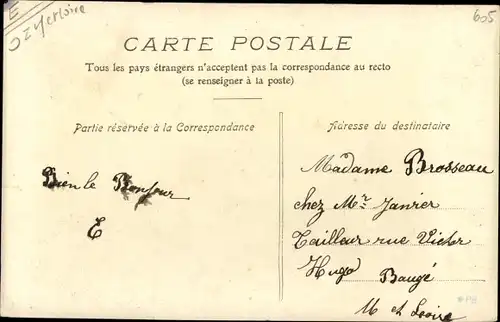 E
605
CARTE POSTALE
Tous les pays étrangers n'acceptent pas la correspondance au recto
(se renseigner à la poste)
Partie réservée à la Correspondance
Bien le Bonjour
E
Adresse du destinataire
Madame Brosseau
chez Mr Janvier
Tailleur rue Victor
Hugo Baugé
M et Loire